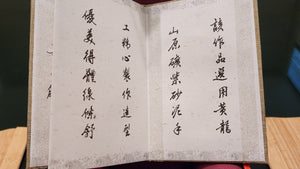 該作品選用黃龍
山原礦紫砂泥手
工精心製作造型
優美得體線條舒